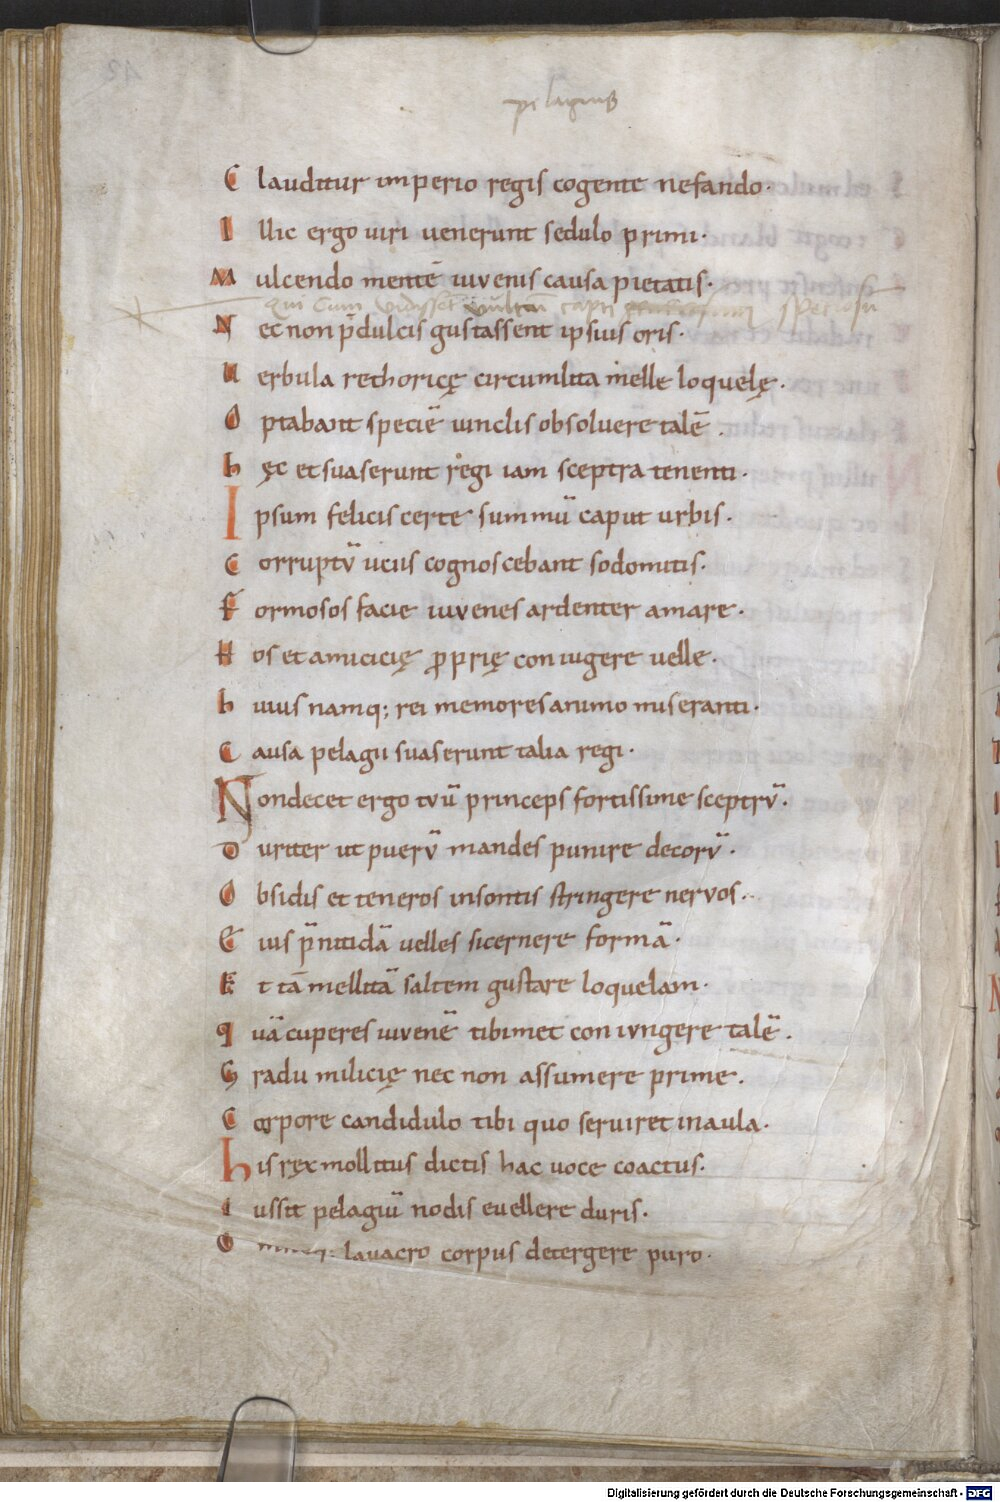 pelagius
Clauditur imperio regis cogente nefando·
Illic ergo uiri uenerunt sedulo primi·
Mulcendo mentē iuvenis causa pietatis·
Qui cum vidysset vultū capti speciosū
Nec non p̄dulcis gustassent ipsius oris·
Uerbula rethoricę circumlita melle loquelę·
Optabant speciē uinclis obsoluere talē·
hęc et suaserunt regi iam sceptra tenenti·
Ipsum felicis certe summū caput urbis·
Corruptū uciis cognoscebant sodomitis·
Formosos facie iuvenes ardenter amare·
Hos et amicicię ꝓprię coniugere uelle·
huius namq; rei memores animo miseranti·
Causa pelagii suaserunt talia regi·
Non decet ergo tvū princeps fortissime sceptrū·
Duriter ut puerū mandes punire decorū·
Obsidis et teneros insontis stringere nervos·
Eius p̄nitidā uelles si cernere formā·
Et tā mellitā saltem gustare loquelam·
Quā cuperes iuvenē tibimet coniungere talē·
Gradu milicię nec non assumere prime·
Corpore candidulo tibi quo seruiret in aula·
His ręx mollitus dictis hac uoce coactus·
Iussit pelagiū nodis euellere duris·
lauacro corpus detergere puro·
Digitalisierung gefördert durch die Deutsche Forschungsgemeinschaft - DFG